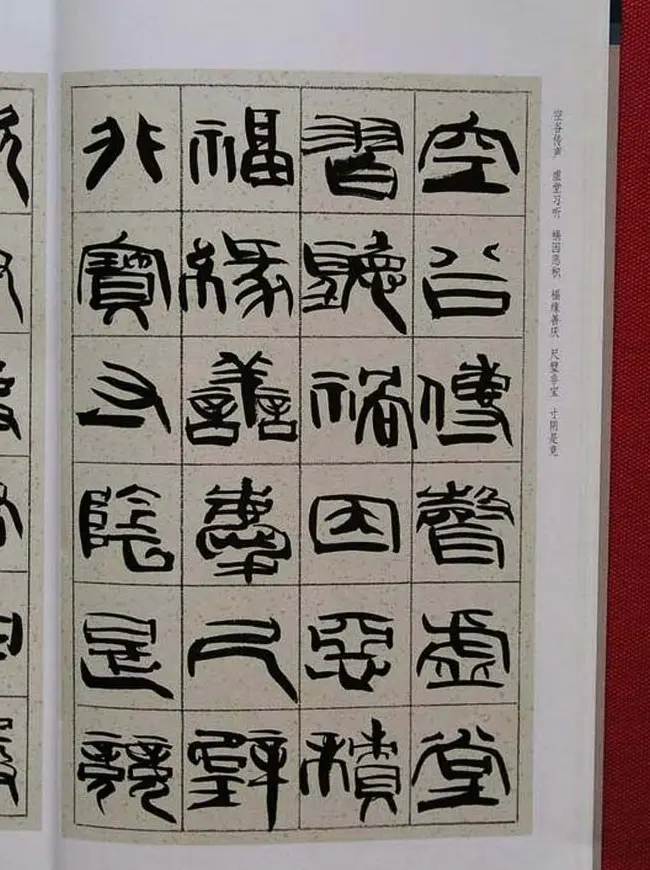 空谷传声 虚堂习听 祸因恶积 福缘善庆 尺璧非宝 寸阴是竞
空谷傳聲虛堂
習聽禍因惡積
福緣善慶尺璧
非寶寸陰是競